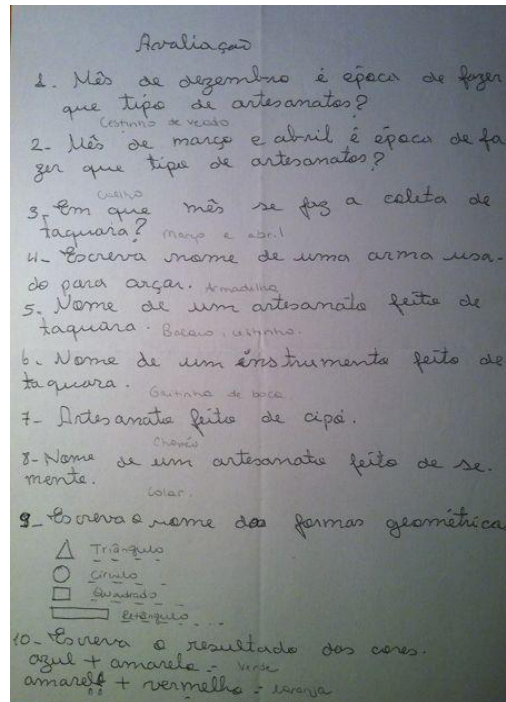 Avaliação
1. Mês de dezembro é época de fazer
que tipo de artesanatos?
Cestinho de veado
2- Mês de março e abril é época de fa
zer que tipo de artesanatos?
Coelho
3- Em que mês se faz a coleta de
taquara? março e abril
4- Escreva nome de uma arma usa-
do para arçar. Armadilha
5. Nome de um artesanato feito de
taquara. Balaio, cestinho.
6- Nome de um instrumento feito de
taquara.
Gaitinha de boca.
7- Artesanato feito de cipó.
Chapéu
8- Nome de um artesanato feito de se.
mente.
Colar.
9- Escreva o nome das formas geométrica
Triângulo
Círculo
Quadrado
Retângulo
10- Escreva o resultado das cores.
azul + amarelo = verde
amarelo + vermelho = laranja